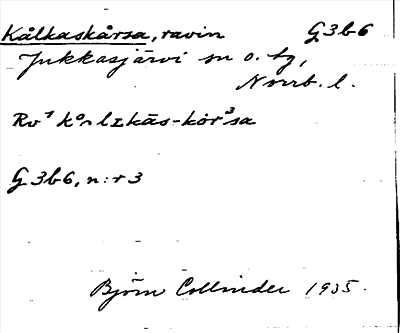 Kålkaskårsa, ravin G3b6
Jukkasjärvi sn o. tg,
Norrb. l.
G3b6, n:r 3
Björn Collinder 1935.